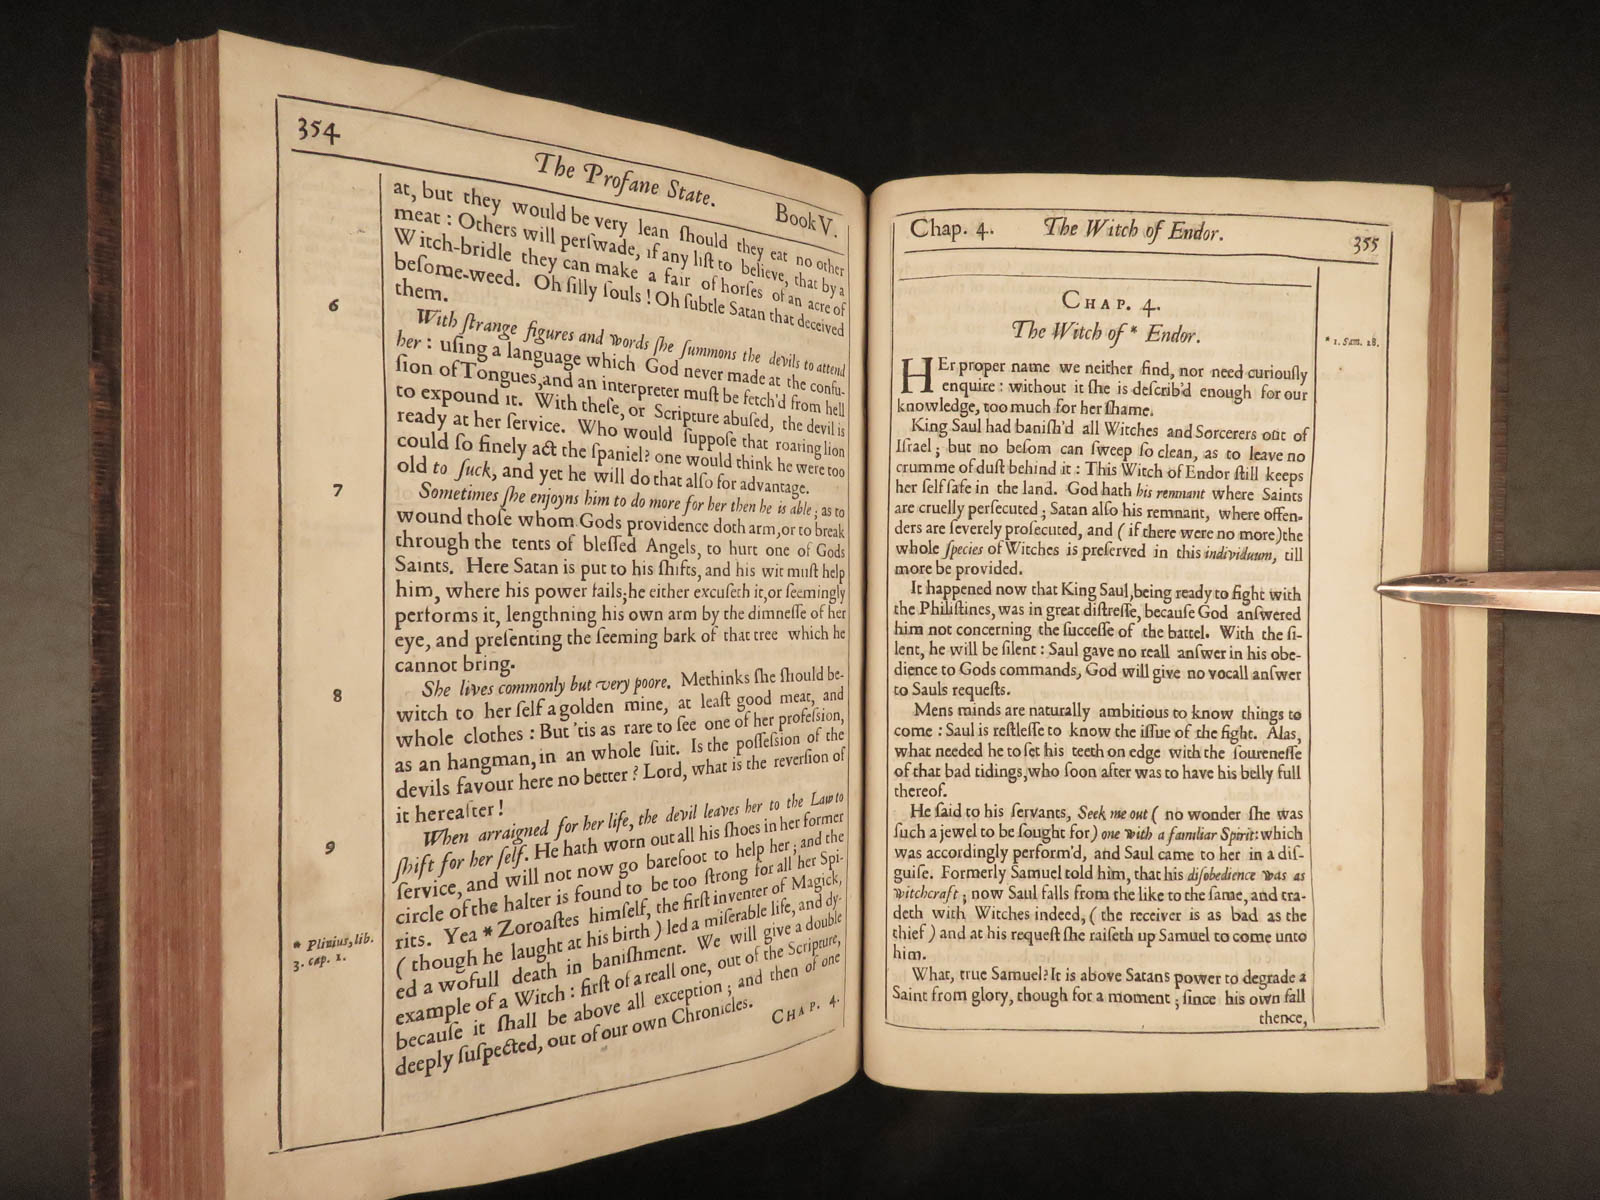 354
The Profane State.
Book V.
at, but they would be very lean ſhould they eat no other
meat : Others will perſwade, if any liſt to believe, that by a
Witch-bridle they can make a fair of horſes of an acre of
beſome-weed. Oh ſilly ſouls ! Oh ſubtle Satan that deceived
them.
6
With ſtrange figures and words ſhe ſummons the devils to attend
her : uſing a language which God never made at the confu-
ſion of Tongues, and an interpreter muſt be fetch'd from hell
to expound it. With theſe, or Scripture abuſed, the devil is
ready at her ſervice. Who would ſuppoſe that roaring lion
could ſo finely act the ſpaniel? one would think he were too
old to ſuck, and yet he will do that alſo for advantage.
7
Sometimes ſhe enjoyns him to do more for her then he is able; as to
wound thoſe whom Gods providence doth arm, or to break
through the tents of bleſſed Angels, to hurt one of Gods
Saints. Here Satan is put to his ſhifts, and his wit muſt help
him, where his power fails; he either excuſeth it, or ſeemingly
performs it, lengthning his own arm by the dimneſſe of her
eye, and preſenting the ſeeming bark of that tree which he
cannot bring.
8
She lives commonly but very poore. Methinks ſhe ſhould be-
witch to her ſelf a golden mine, at leaſt good meat, and
whole clothes : But 'tis as rare to ſee one of her profeſſion,
as an hangman, in an whole ſuit. Is the poſſeſſion of the
devils favour here no better ? Lord, what is the reverſion of
it hereafter !
9
When arraigned for her life, the devil leaves her to the Law to
ſhift for her ſelf. He hath worn out all his ſhoes in her former
ſervice, and will not now go barefoot to help her ; and the
circle of the halter is found to be too ſtrong for all her Spi-
rits. Yea * Zoroaſtes himſelf, the firſt inventer of Magick,
* Plinius, lib.
3. cap. 1.
( though he laught at his birth ) led a miſerable life, and dy-
ed a wofull death in baniſhment. We will give a double
example of a Witch : firſt of a reall one, out of the Scripture,
becauſe it ſhall be above all exception ; and then of one
deeply ſuſpected, out of our own Chronicles.
CHAP. 4.
Chap. 4.
The Witch of Endor.
355
CHAP. 4.
The Witch of * Endor.
* 1. Sam. 28.
HEr proper name we neither find, nor need curiouſly
enquire : without it ſhe is deſcrib'd enough for our
knowledge, too much for her ſhame.
King Saul had baniſh'd all Witches and Sorcerers out of
Iſrael ; but no beſom can ſweep ſo clean, as to leave no
crumme of duſt behind it : This Witch of Endor ſtill keeps
her ſelf ſafe in the land. God hath his remnant where Saints
are cruelly perſecuted ; Satan alſo his remnant, where offen-
ders are ſeverely proſecuted, and ( if there were no more) the
whole ſpecies of Witches is preſerved in this individuum, till
more be provided.
It happened now that King Saul, being ready to fight with
the Philiſtines, was in great diſtreſſe, becauſe God anſwered
him not concerning the ſucceſſe of the battel. With the ſi-
lent, he will be ſilent : Saul gave no reall anſwer in his obe-
dience to Gods commands, God will give no vocall anſwer
to Sauls requeſts.
Mens minds are naturally ambitious to know things to
come : Saul is reſtleſſe to know the iſſue of the fight. Alas,
what needed he to ſet his teeth on edge with the ſoureneſſe
of that bad tidings, who ſoon after was to have his belly full
thereof.
He ſaid to his ſervants, Seek me out ( no wonder ſhe was
ſuch a jewel to be ſought for ) one with a familiar Spirit: which
was accordingly perform'd, and Saul came to her in a diſ-
guiſe. Formerly Samuel told him, that his diſobedience was as
witchcraft ; now Saul falls from the like to the ſame, and tra-
deth with Witches indeed, ( the receiver is as bad as the
thief ) and at his requeſt ſhe raiſeth up Samuel to come unto
him.
What, true Samuel? It is above Satans power to degrade a
Saint from glory, though for a moment ; ſince his own fall
thence,